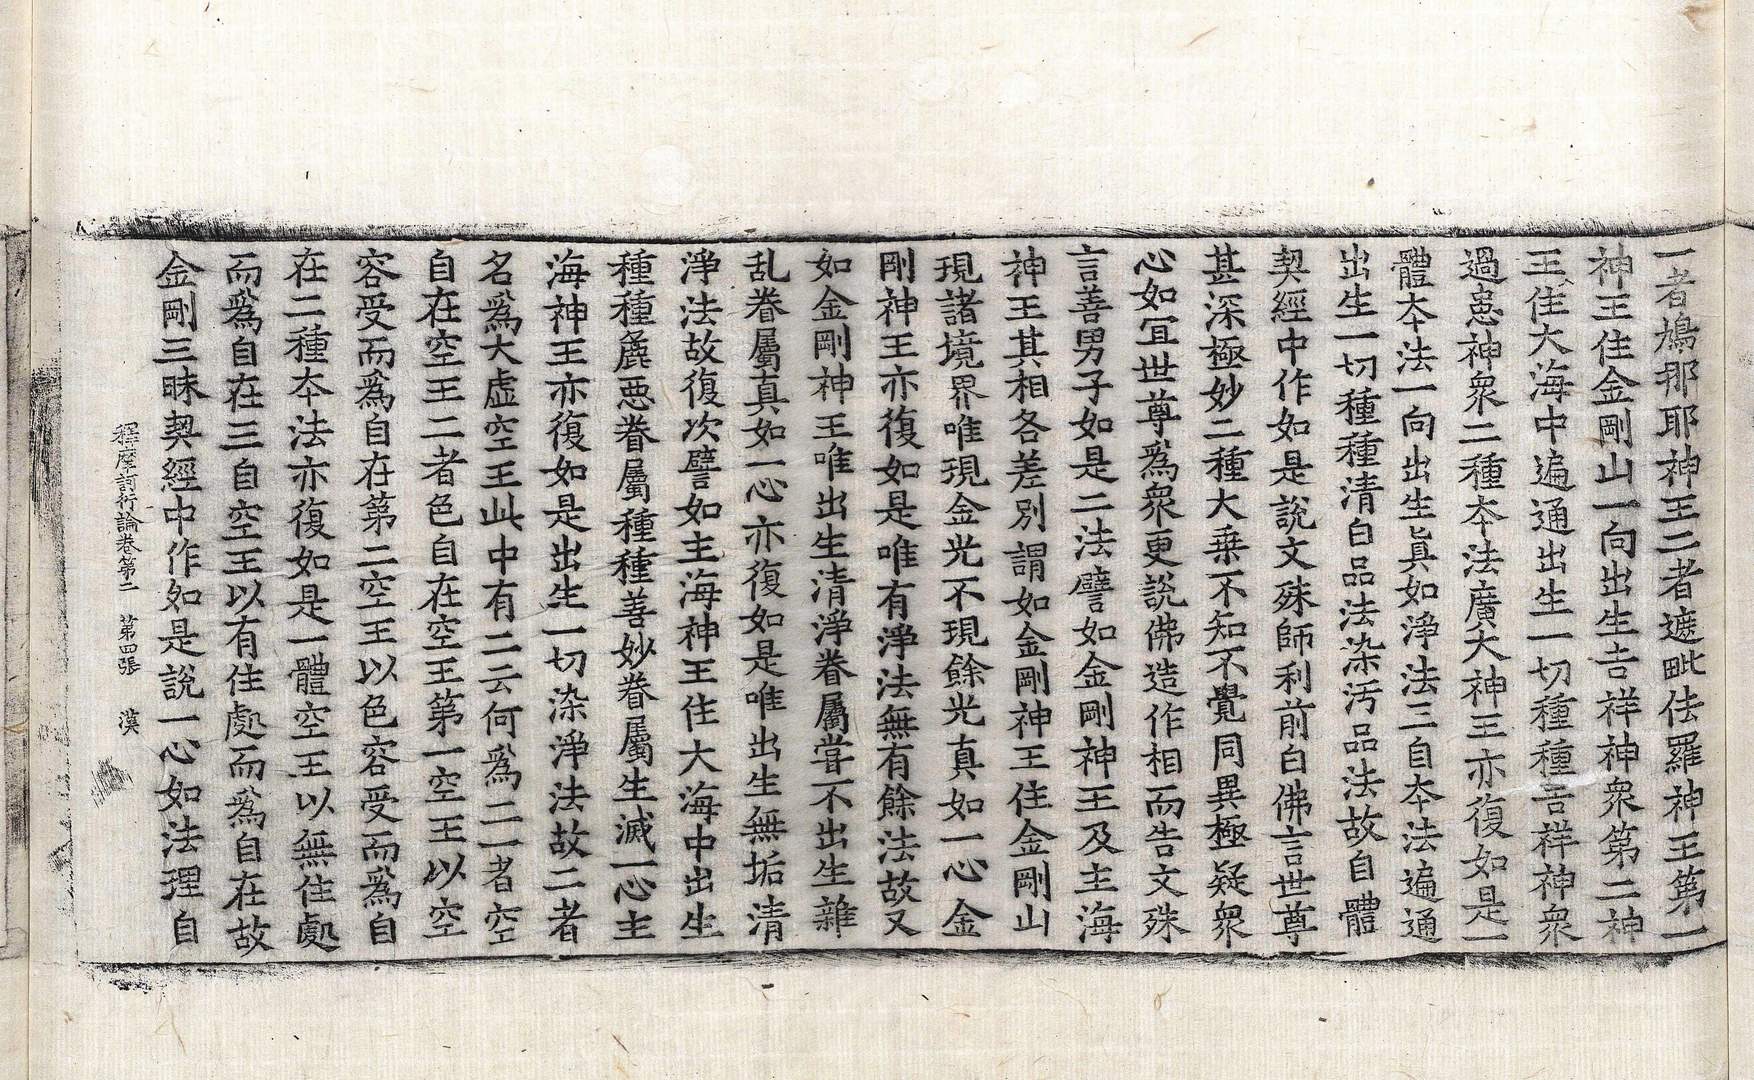 一者鳩那耶神王二者遮毗佉羅神王第一
神王住金剛山一向出生吉祥神衆第二神
王住大海中遍通出生一切種種吉祥神衆
過患神衆二種本法廣大神王亦復如是一
體本法一向出生眞如淨法三自本法遍通
出生一切種種清白品法染汚品法故自體
契經中作如是說文殊師利前白佛言世尊
甚深極妙二種大乗不知不覺同異極疑衆
心如冝世尊爲衆更說佛造作相而告文殊
言善男子如是二法譬如金剛神王及主海
神王其相各差別謂如金剛神王住金剛山
現諸境界唯現金光不現餘光真如一心金
剛神王亦復如是唯有淨法無有餘法故又
如金剛神王唯出生清淨眷屬甞不出生雜
乱眷屬真如一心亦復如是唯出生無垢清
淨法故復次譬如主海神王住大海中出生
種種麁惡眷屬種種善妙眷屬生滅一心主
海神王亦復如是出生一切染淨法故二者
名爲大虛空王此中有二云何爲二一者空
自在空王二者色自在空王第一空王以空
容受而爲自在第二空王以色容受而爲自
在二種本法亦復如是一體空王以無住處
而爲自在三自空王以有住處而爲自在故
金剛三昧契經中作如是說一心如法理自
釋摩訶衍論卷第二 第四張 漢